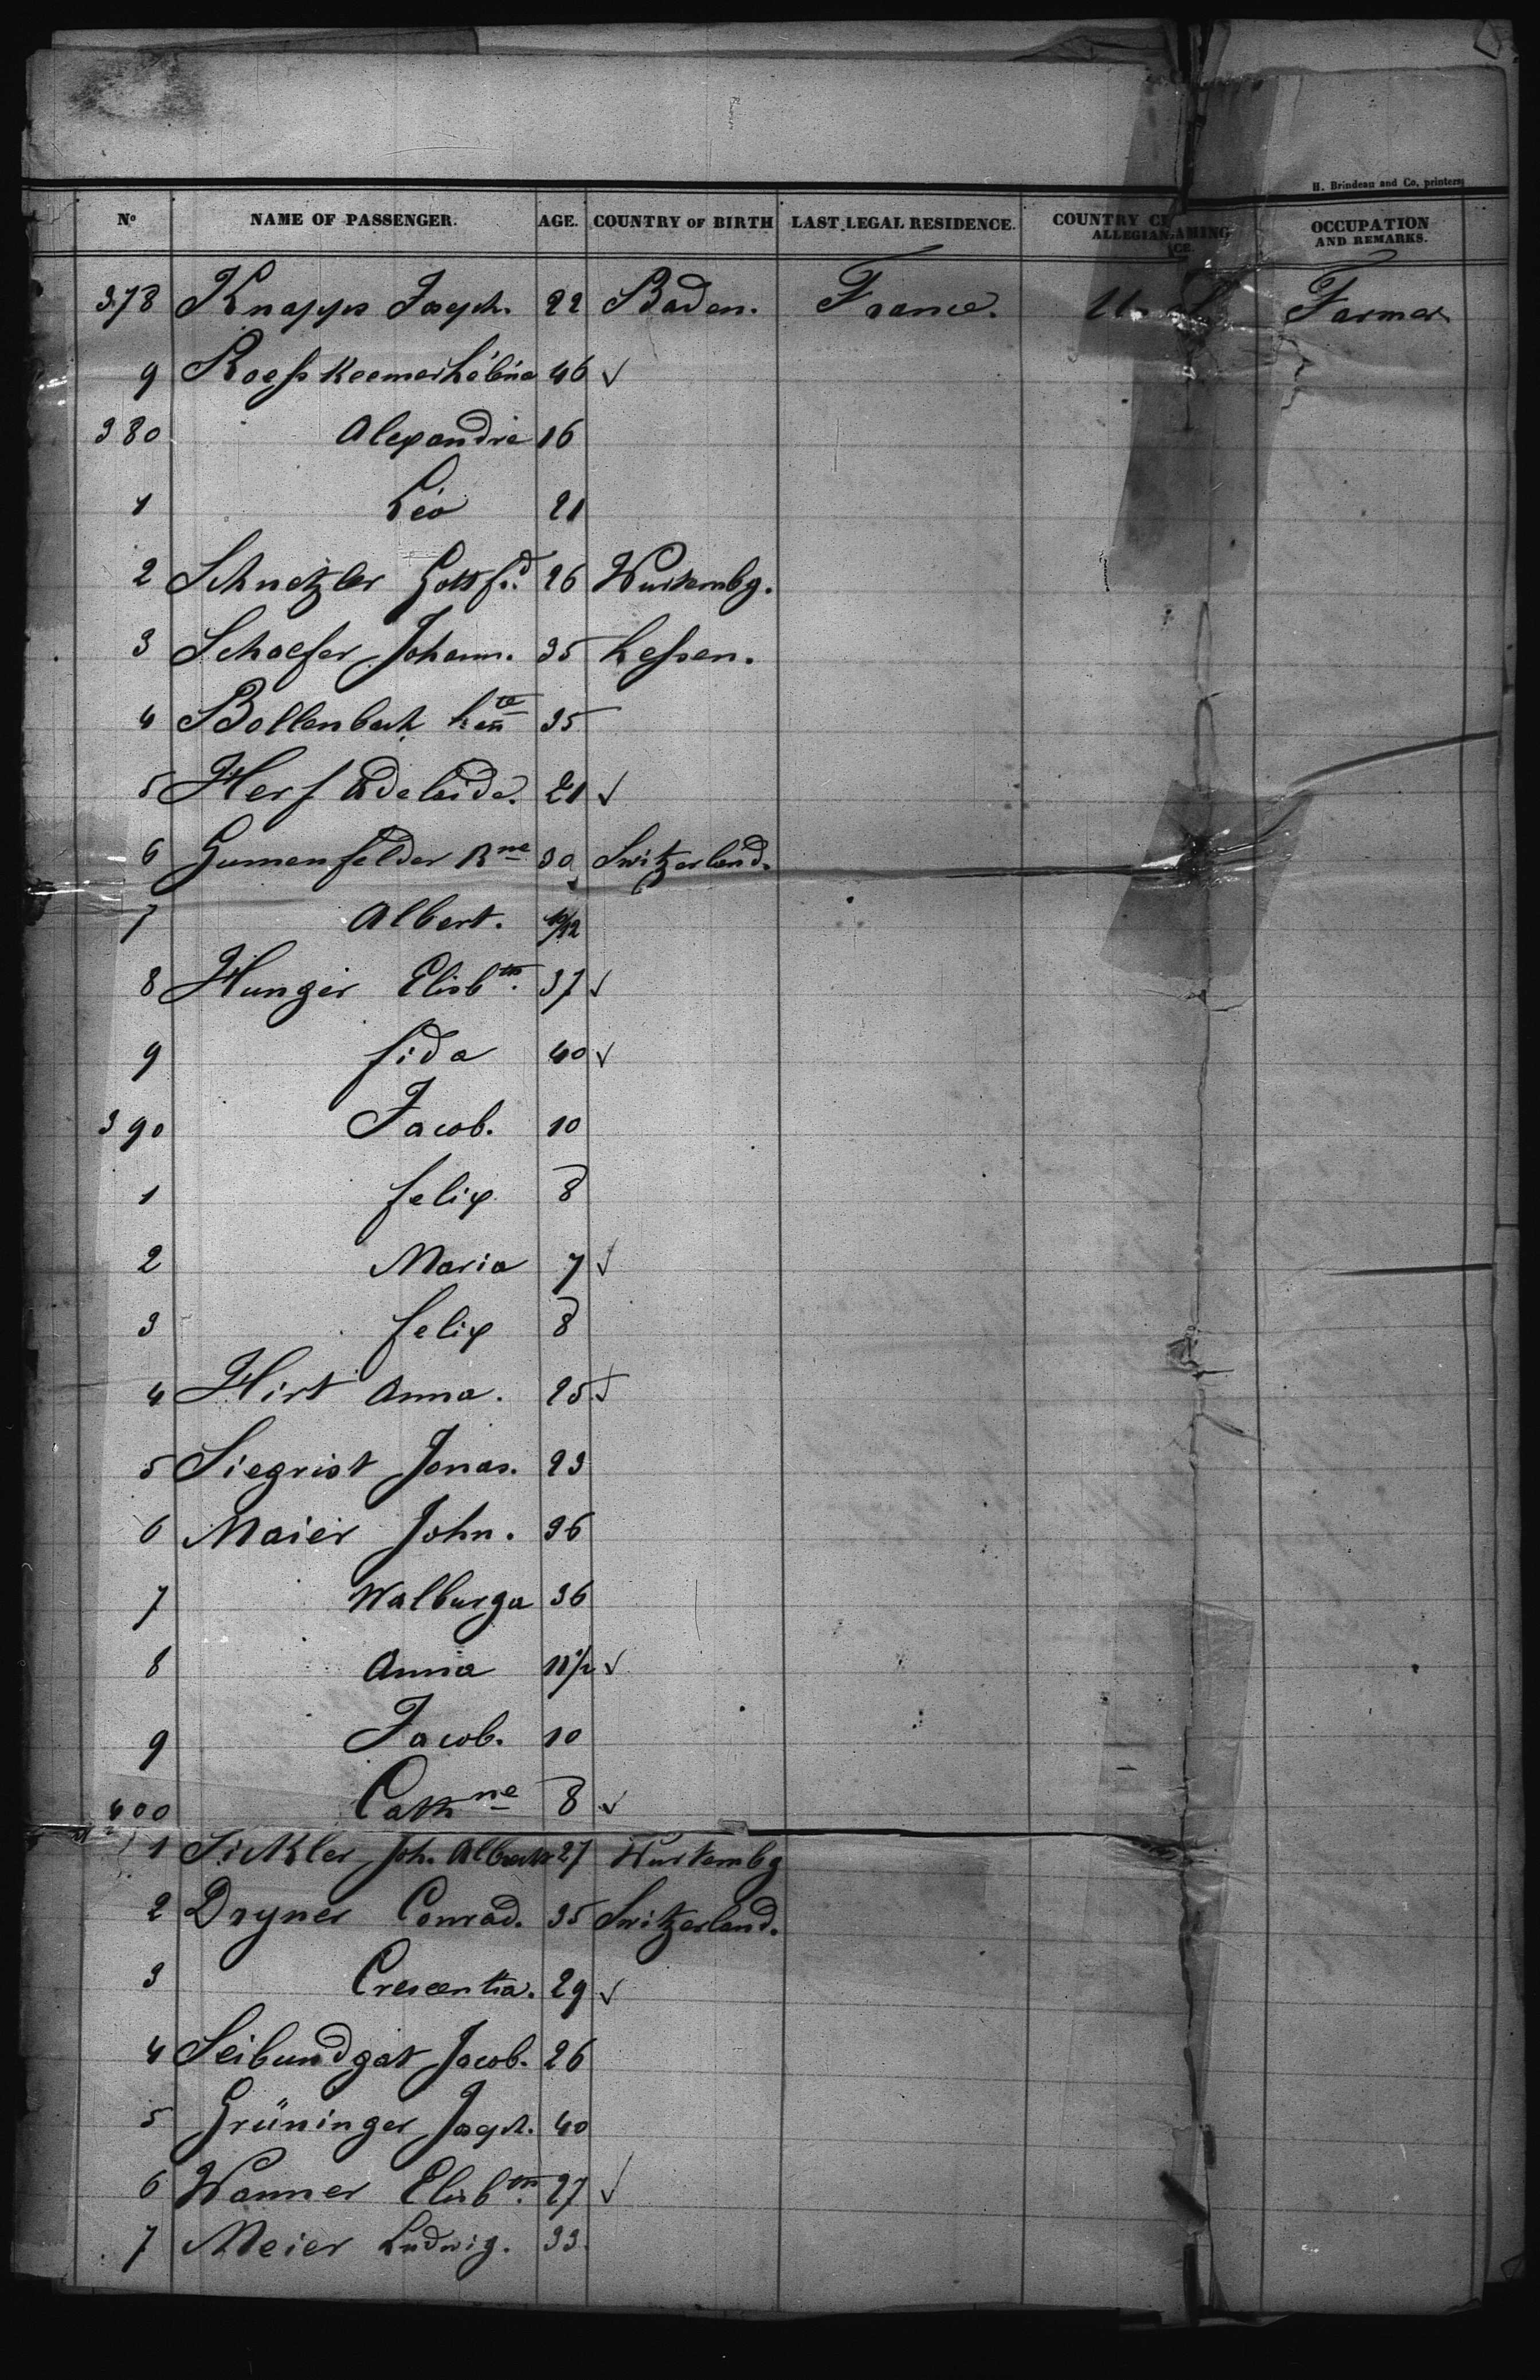 H. Brindeau and Co, printers
N° NAME OF PASSENGER. AGE. COUNTRY OF BIRTH LAST LEGAL RESIDENCE. COUNTRY CLAIMING ALLEGIANCE. OCCUPATION AND REMARKS.
378 Knapps Joseph. 22 Baden. France. Farmer
9 Roess Keemer Héléne 46 ✓
380 Alexandre 16
1 Léo 21
2 Schnetzler Gottfd. 26 Wurtembg.
3 Schaefer Johann. 35 Hessen.
4 Bollenbach 35
5 Herf Adelaide. 21 ✓
6 Gumenfelder Rne 30 Switzerland.
7 Albert. 10/12
8 Hunger Elisbth. 37 ✓
9 fida 40 ✓
390 Jacob. 10
1 felix 8
2 Maria 7 ✓
3 felix 8
4 Hirt Anna. 25 ✓
5 Siegrist Jonas. 23
6 Maier John. 36
7 Walburga 36
8 Anna 11 1/2 ✓
9 Jacob. 10
400 Cathne 8 ✓
1 Sickler Joh. Albrecht 27 Wurtembg
2 Dryner Conrad. 35 Switzerland.
3 Crescentia. 29 ✓
4 Leibundgat Jacob. 26
5 Grüninger Joseph. 40
6 Wanner Elisbth. 27 ✓
7 Meier Ludwig. 33.